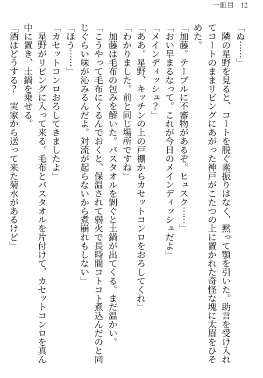 一皿目　12
「ぬ……」
　隣の星野を見ると、コートを脱ぐ素振りはなく、黙って顎を引いた。助言を受け入れ
てコートのままリビングにあがった神戸がこたつの上に置かれた奇怪な塊に太眉をひそ
めた。
「加藤。テーブルに不審物があるぞ。ヒュスク……」
「おい早まるなって。これが今日のメインディッシュだよ」
「メインディッシュ？」
「ああ。星野、キッチンの上の戸棚からカセットコンロをおろしてくれ」
「わかりました。前と同じ場所ですね」
　加藤は毛布の包みを解いた。バスタオルを剝ぐと土鍋が出てくる。まだ温かい。
「こうやって毛布にくるんでおくと、保温されて弱火で長時間コトコト煮込んだのと同
じぐらい味が沁みるんだよ。対流が起らないから煮崩れもしない」
「ほう……」
「カセットコンロおろしてきましたよ」
　星野がリビングにとって来る。毛布とバスタオルを片付けて、カセットコンロを真ん
中に置き、土鍋を乗せる。
「酒はどうする？　実家から送って来た菊水があるけど」